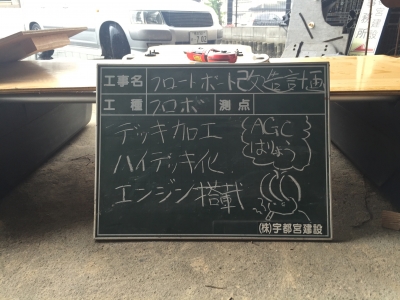 工事名 フロートボート改造計画
工種 フロボ 測点
デッキ加工
ハイデッキ化
エンジン搭載
AGC
はりょう
(株)宇都宮建設